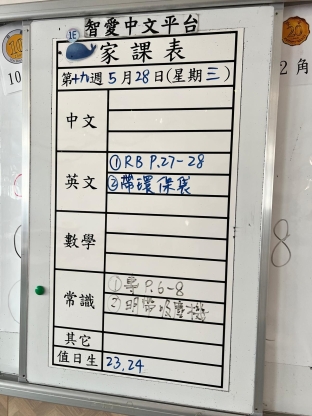 智愛中文平台
1E
家課表
第十九週5月28日(星期三)
中文
英文
①RB P.27-28
②帶環保袋
數學
常識
①專 P.6-8
②明帶吸塵機
其它
值日生
23,24
10
2角
8